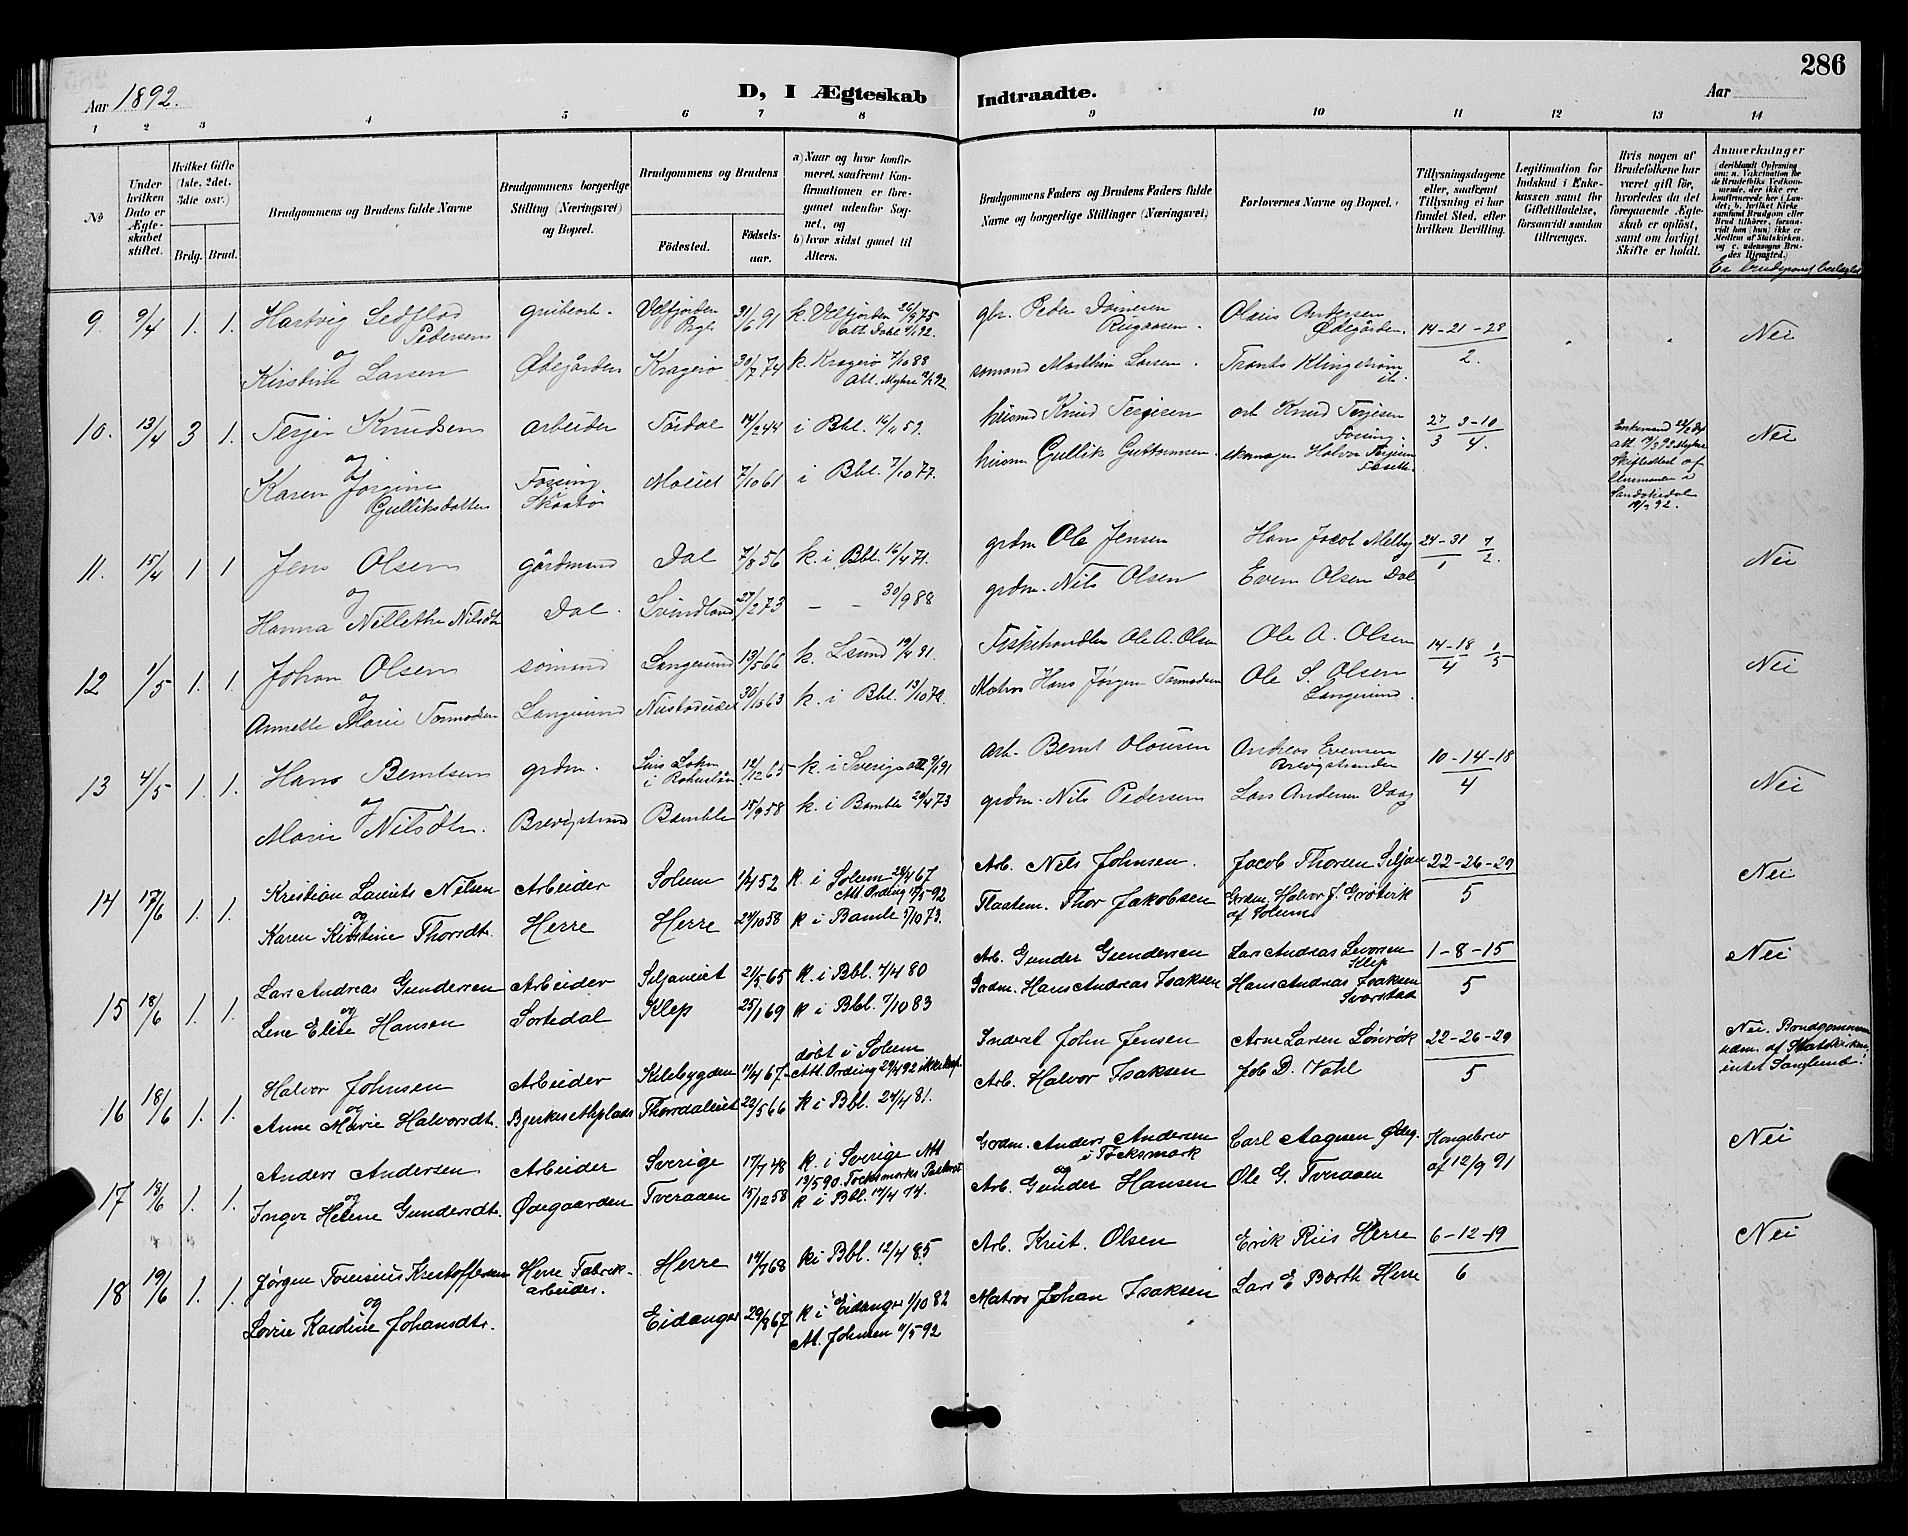 286
Aar 1892.
D, I Ægteskab Indtraadte.
Aar
1 2 3 4 5 6 7 8 9 10 11 12 13 14
No
Under hvilken Dato er Ægteskabet stiftet.
Hvilket Gifte (1ste, 2det, 3die osv.)
Brdg. Brud.
Brudgommens og Brudens fulde Navne
Brudgommens borgerlige Stilling (Næringsvei) og Bopæl.
Brudgommens og Brudens
Födested. Födselsaar.
a) Naar og hvor konfirmeret, saafremt Konfirmationen er foregaaet udenfor Sognet, og
b) hvor sidst gaaet til Alters.
Brudgommens Faders og Brudens Faders fulde Navne og borgerlige Stillinger (Næringsvei)
Forlovernes Navne og Bopæl.
Tillysningsdagene eller, saafremt Tillysning ei har fundet Sted, efter hvilken Bevilling.
Legitimation for Indskud i Enkekassen samt for Giftetilladelse, forsaavidt saadan tiltrænges.
Hvis nogen af Brudefolkene har været gift för, hvorledes da det foregaaende Ægteskab er oplöst, samt om lovligt Skifte er holdt.
Anmerkninger
(deriblandt Oplysning om: a. Vakcination for de Brudefolks Vedkommende, der ikke ere konfirmerede her i Landet; b. hvilket Kirkesamfund Brudgom eller Brud tilhörer, forsaavidt han (hun) ikke er Medlem af Statskirken, og c. udensogns Brudes Hjemsted.)
9. 9/4 1. 1. Hartvig Pedersen Velfjorden k. Velfjorden gbr. Peder Olaus Andersen Ødegården. 14-21-28 Nei
og
Kirstine Larsen Ødegården Kragerø 30/7 74 k. Kragerø 7/10 88 sømand Marthin Larsen. Klingstrøm 2.
10. 13/4 3 1. Terjer Knudsen arbeider Tørdal 14/2 44 i Bbl. 16/11 59. husmd Knud Tergesen arb Knud Terjesen Fossing. 27/3 3-10/4. Nei
og
Karen Jørgine Gulliksdatter Fossing Skaatø 7/10 61 i Bbl. 7/10 77. husm Gullik Guttormsen. skomager Halvor Terjesen
11. 15/4 1 1 Jens Olsen gårdmand Dal 7/8 56 k. i Bbl. 16/4 71. grdm Ole Jensen Hans Jacob Melby 24-31/1 7/2. Nei
og
Hanna Nillethe Nilsdtr Dal. Svindland 27/2 73 - - 30/9 88 grdm. Nils Olsen Even Olsen Dal
12 1/5 1. 1. Johan Olsen sømand Langesund 13/5 66 k. Lsund 19/4 81. Fiskehandler Ole A. Olsen Ole A. Olsen 14-18/4 1/5 Nei
og
Annette Marie Tormodsen Langesund 30/10 63 k. i Bbl. Matros Hans Jørgen Tormodsen Ole S. Olsen Langesund.
13 4/5 1. 1. Hans Berntsen grdm. 12/12 65 k. i Sverige arb. Bernt Andreas Evensen Brevigstranden 10-14-18 Nei
og
Marie Nilsdtr. Brevigstrand Bamble 15/9 58 k. i Bamble 20/4 73 grdm. Nils Pedersen Lars Andersen Vaag 4
14 17/6 1. 1. Kristian Laurits Nilsen Arbeider Solum 1/4 52 k. i Solum 28/4 67 Att Ording 17/5 92 Arb. Nils Johnsen. Jacob Thorsen Siljan 22-26-29 Nei
og
Karen Kirstine Thorsdtr. Herre Herre 24/10 58 k i Bamle 5/10 73. Flaatem. Thor Jakobsen Grdm. Halvor J. Grøtvik af Solum 5
15 18/6 1. 1. Lars Andreas Gundersen Arbeider Siljaneiet 21/5 65 k. i Bbl. 4/4 80 Arb. Gunder Gundersen Lars Andreas Levorsen Klep 1-8-15 Nei
og
Lene Elise Hansen Sortedal Klep 25/1 69 k i Bbl. 7/10 83 Grdm. Hans Andreas Isaksen Hans Andreas Isaksen 5
16 18/6 1. 1. Halvor Johnsen Arbeider Kilebygden 11/4 67 døbt i Solum Att. Ording 29/4 92 ikke konf. Inderst John Jensen Arne Larsen Lønrøk 22-26-29 Nei. Brudgommen udm. af Statskirken, intet Samfund.
og
Anne Marie Halvorsdtr. Thorsdaleiet 22/5 66 k i Bbl. 24/4 81. Arb. Halvor Isaksen Job D. Vahl 5
17 18/6 1. 1. Anders Andersen Arbeider Sverige 17/7 48 k. i Sverige Att 13/5 90 Tocksmarks Pastorat Grdm. Anders Andersen i Tocksmark Carl Aagesen Ødeg. Kongebrev af 12/9 91 Nei
og
Inger Helene Gundersdtr. Ødegaarden Tveraaen 15/12 58 k i Bbl. 12/4 74. Arb. Gunder Hansen Ole G. Tveraaen
18 19/6 1. 1. Jørgen Tonesius Kristoffersen Herre Fabrikarbeider. Herre 14/7 68 k i Bbl. 12/4 85. Arb. Krist. Olsen Erik Riis Herre 6-12-19 Nei
og
Lovise Karoline Johansdtr. Eidanger 29/8 67 k i Eidanger 1/10 82 Att. Johnsen 11/5 92 Matros Johan Isaksen Lars E Barth Herre 6